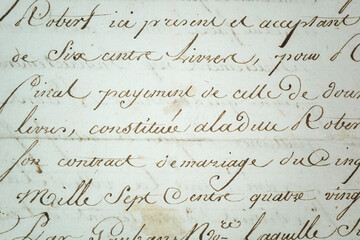 Robert ici present et acceptant
de Six cents Livres, pour
final payement de celle de dou
livres, constituée a ladille Rober
son contract de mariage du Cinq
Mille Sept Cents quatre ving
Par Nore laquelle